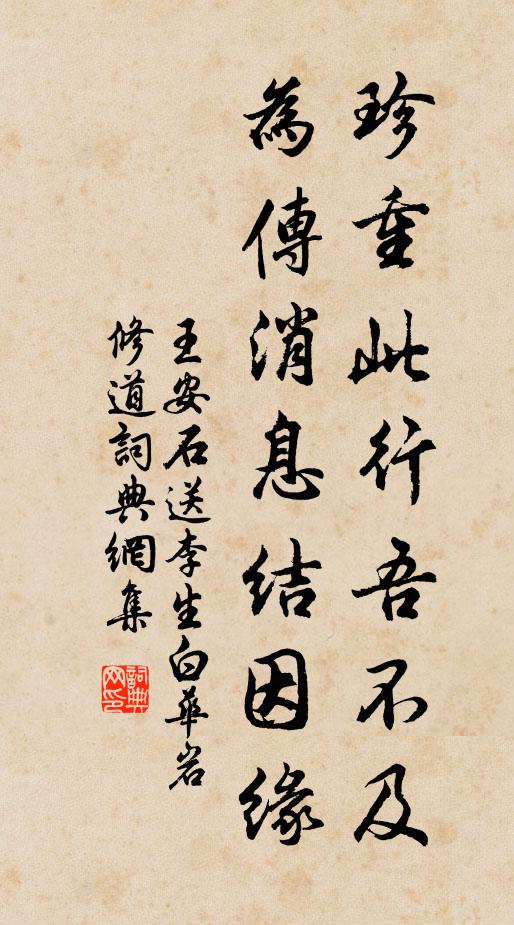 珍重此行吾不及
為傳消息結因緣
王安石送李生白華岩
修道詞典網集
詞典网印